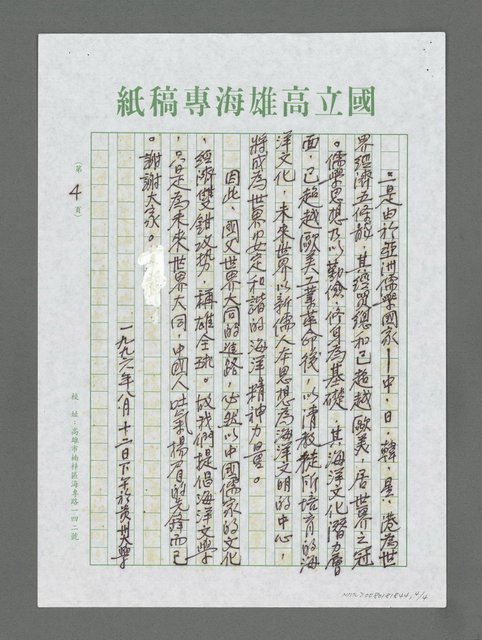 國立高雄海專稿紙
。二是由於亞洲儒學國家—中、日、韓、星、港為世
界經濟五條龍,其經貿總和已超越歐美,居世界之冠
。儒學思想乃以勤儉、修身為基礎,其海洋文化潛力層
面,已超越歐美工業革命後,以清教徒所培育的海
洋文化,未來世界以新儒人本思想為海洋文明的中心,
將成為世界安定和諧的海洋精神力量。
因此,國父世界大同的進路,必然以中國儒家的文化
、經濟雙鉗攻勢,稱雄全球。故我們提倡海洋文學
,只是為未來世界大同,中國人吐氣揚眉的先鋒而已
。謝謝大家。
一九九六年八月十二日下午於 大學
(第 4 頁)
校址:高雄市楠梓區海專路一四二號
4/4